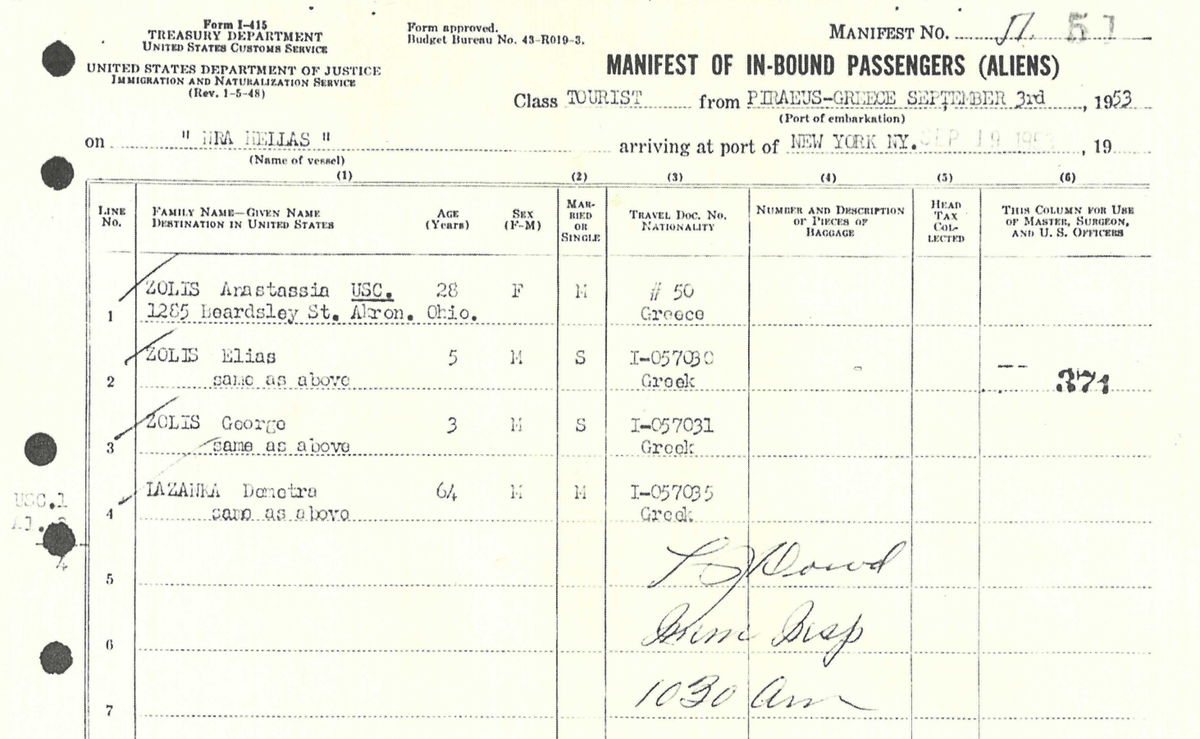 Form I-415
TREASURY DEPARTMENT
UNITED STATES CUSTOMS SERVICE
UNITED STATES DEPARTMENT OF JUSTICE
IMMIGRATION AND NATURALIZATION SERVICE
(Rev. 1-5-48)
Form approved.
Budget Bureau No. 43-R019-3.
MANIFEST NO. 51
MANIFEST OF IN-BOUND PASSENGERS (ALIENS)
Class TOURIST from PIRAEUS-GREECE SEPTEMBER 3rd, 1953
(Port of embarkation)
on " NEA HELLAS " arriving at port of NEW YORK NY. SEP 19 1953, 19
(Name of vessel)
(1) (2) (3) (4) (5) (6)
LINE NO. FAMILY NAME—GIVEN NAME DESTINATION IN UNITED STATES AGE (Years) SEX (F-M) MARRIED OR SINGLE TRAVEL DOC. NO. NATIONALITY NUMBER AND DESCRIPTION OF PIECES OF BAGGAGE HEAD TAX COLLECTED THIS COLUMN FOR USE OF MASTER, SURGEON, AND U. S. OFFICERS
ZOLIS Anastassia USC. 28 F M # 50
1 1285 Beardsley St. Akron. Ohio. Greece
ZOLIS Elias 5 M S I-057030
2 same as above Greek 371
ZOLIS George 3 M S I-057031
3 same as above Greek
LAZANKA Demetra 64 M M I-057035
4 same as above Greek
USC.1
Al. 3
4
5 Dowd
6 Imm Insp
7 1030 Am